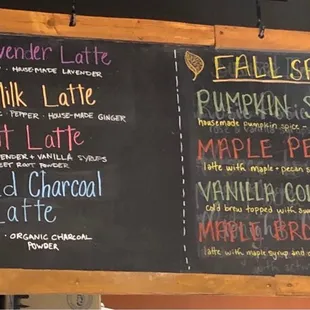 vender Latte
• House-made Lavender
Milk Latte
• Pepper • House-made Ginger
t Latte
vender + Vanilla Syrups
eet Root Powder
d Charcoal
Latte
• Organic Charcoal
Powder
Fall Sp
Pumpkin S
housemade pumpkin spice
Maple Pe
latte with maple + pecan s
Vanilla Co
cold brew topped with sw
Maple Bro
latte with maple syrup and c